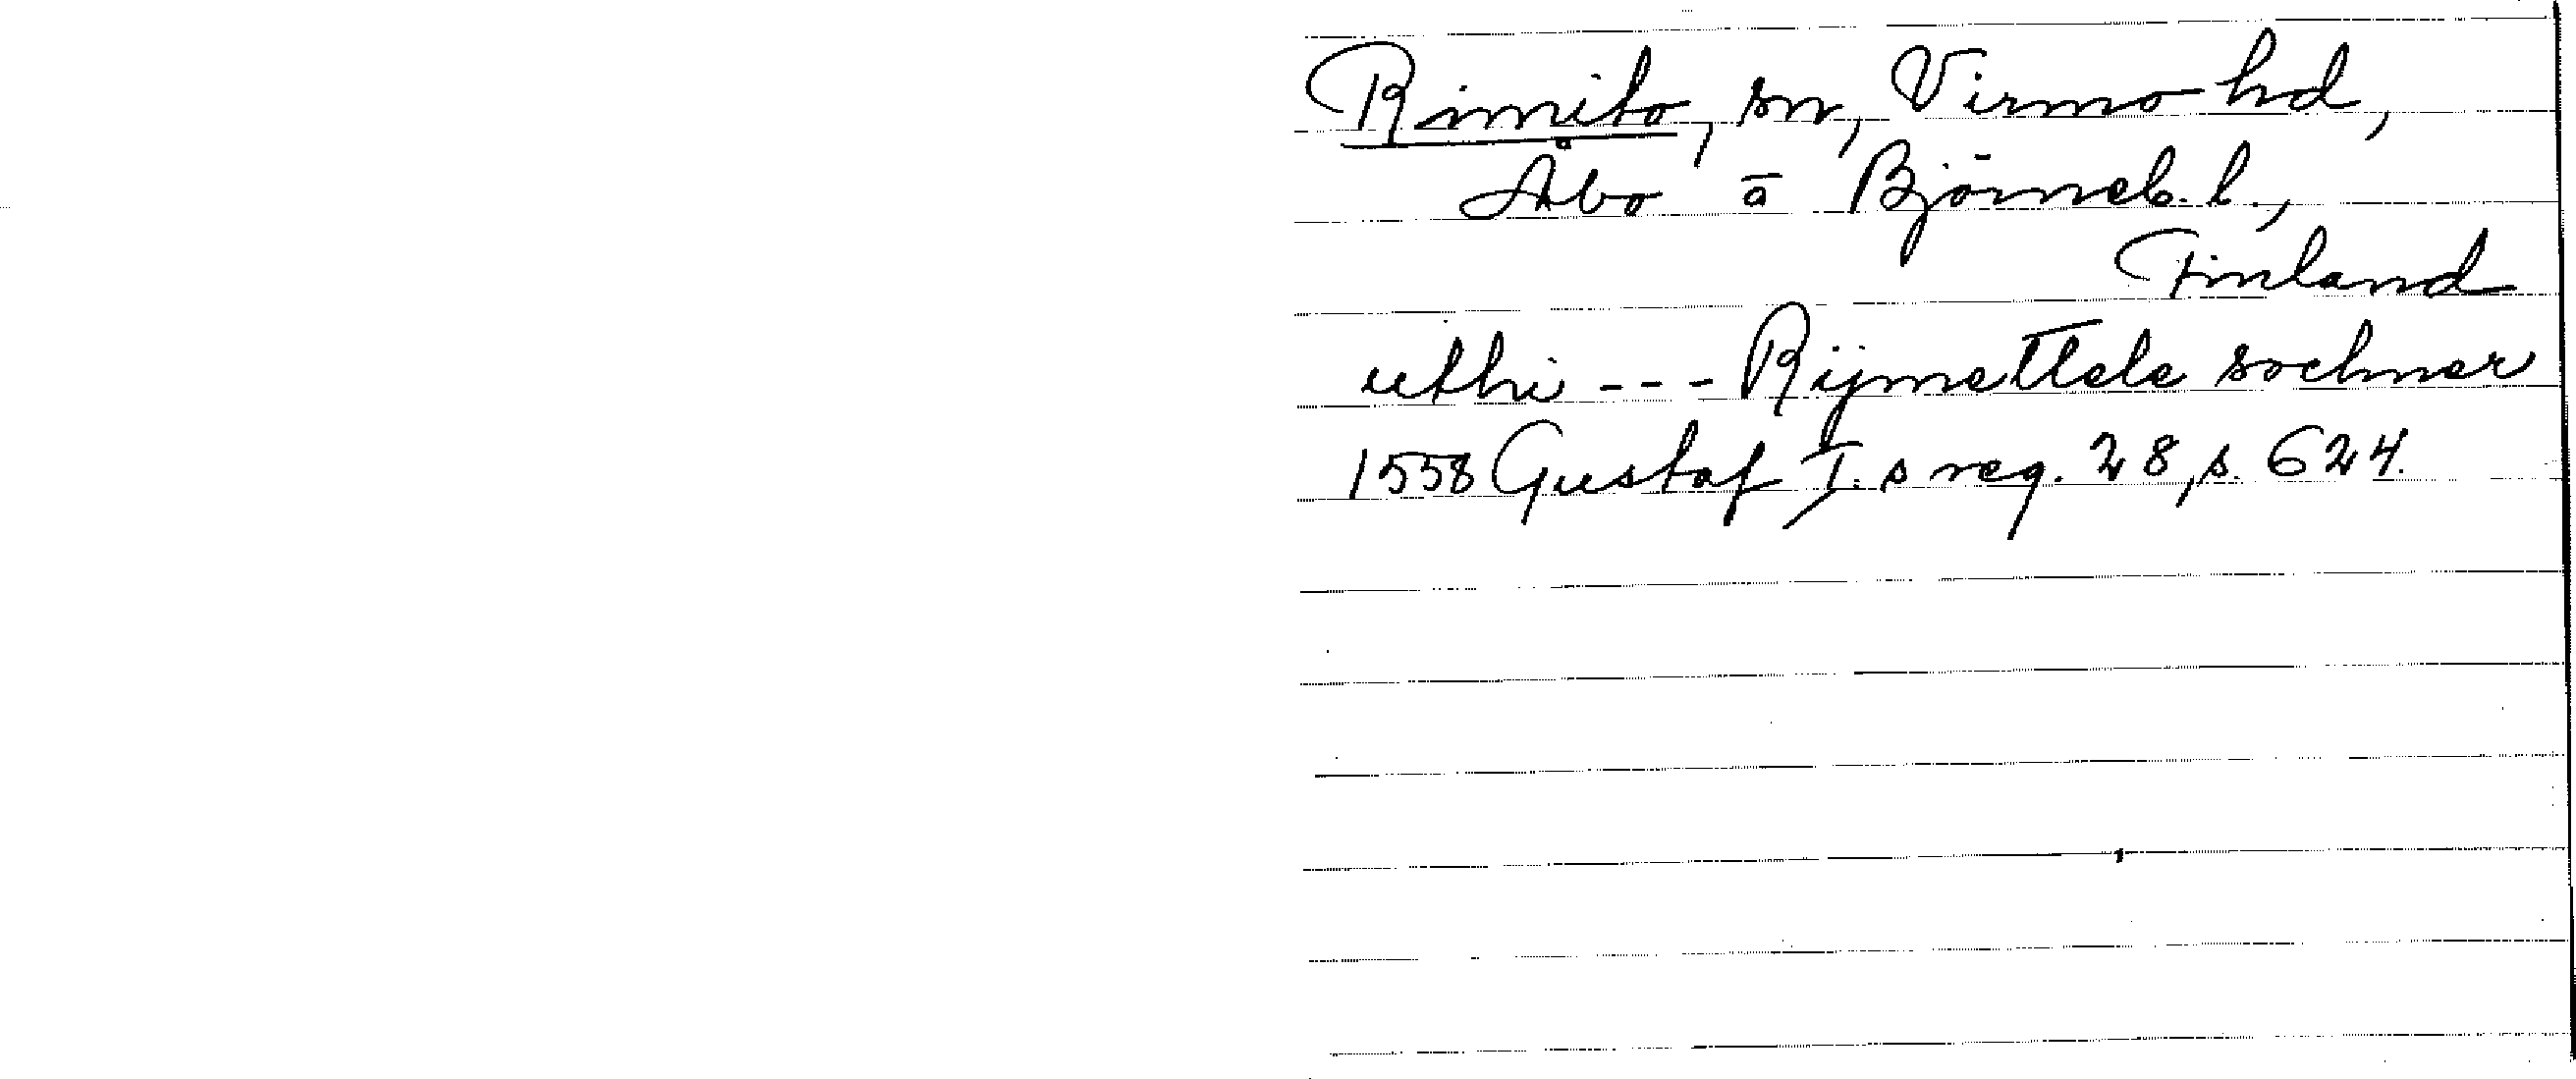 Rimito, sn, Virmo hd,
Åbo o Björneb. l.,
Finland
uthi --- Rijmettele sochner
1558 Gustaf I.s reg. 28, s. 624.